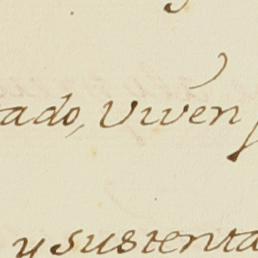 ado, Viven
y sustenta